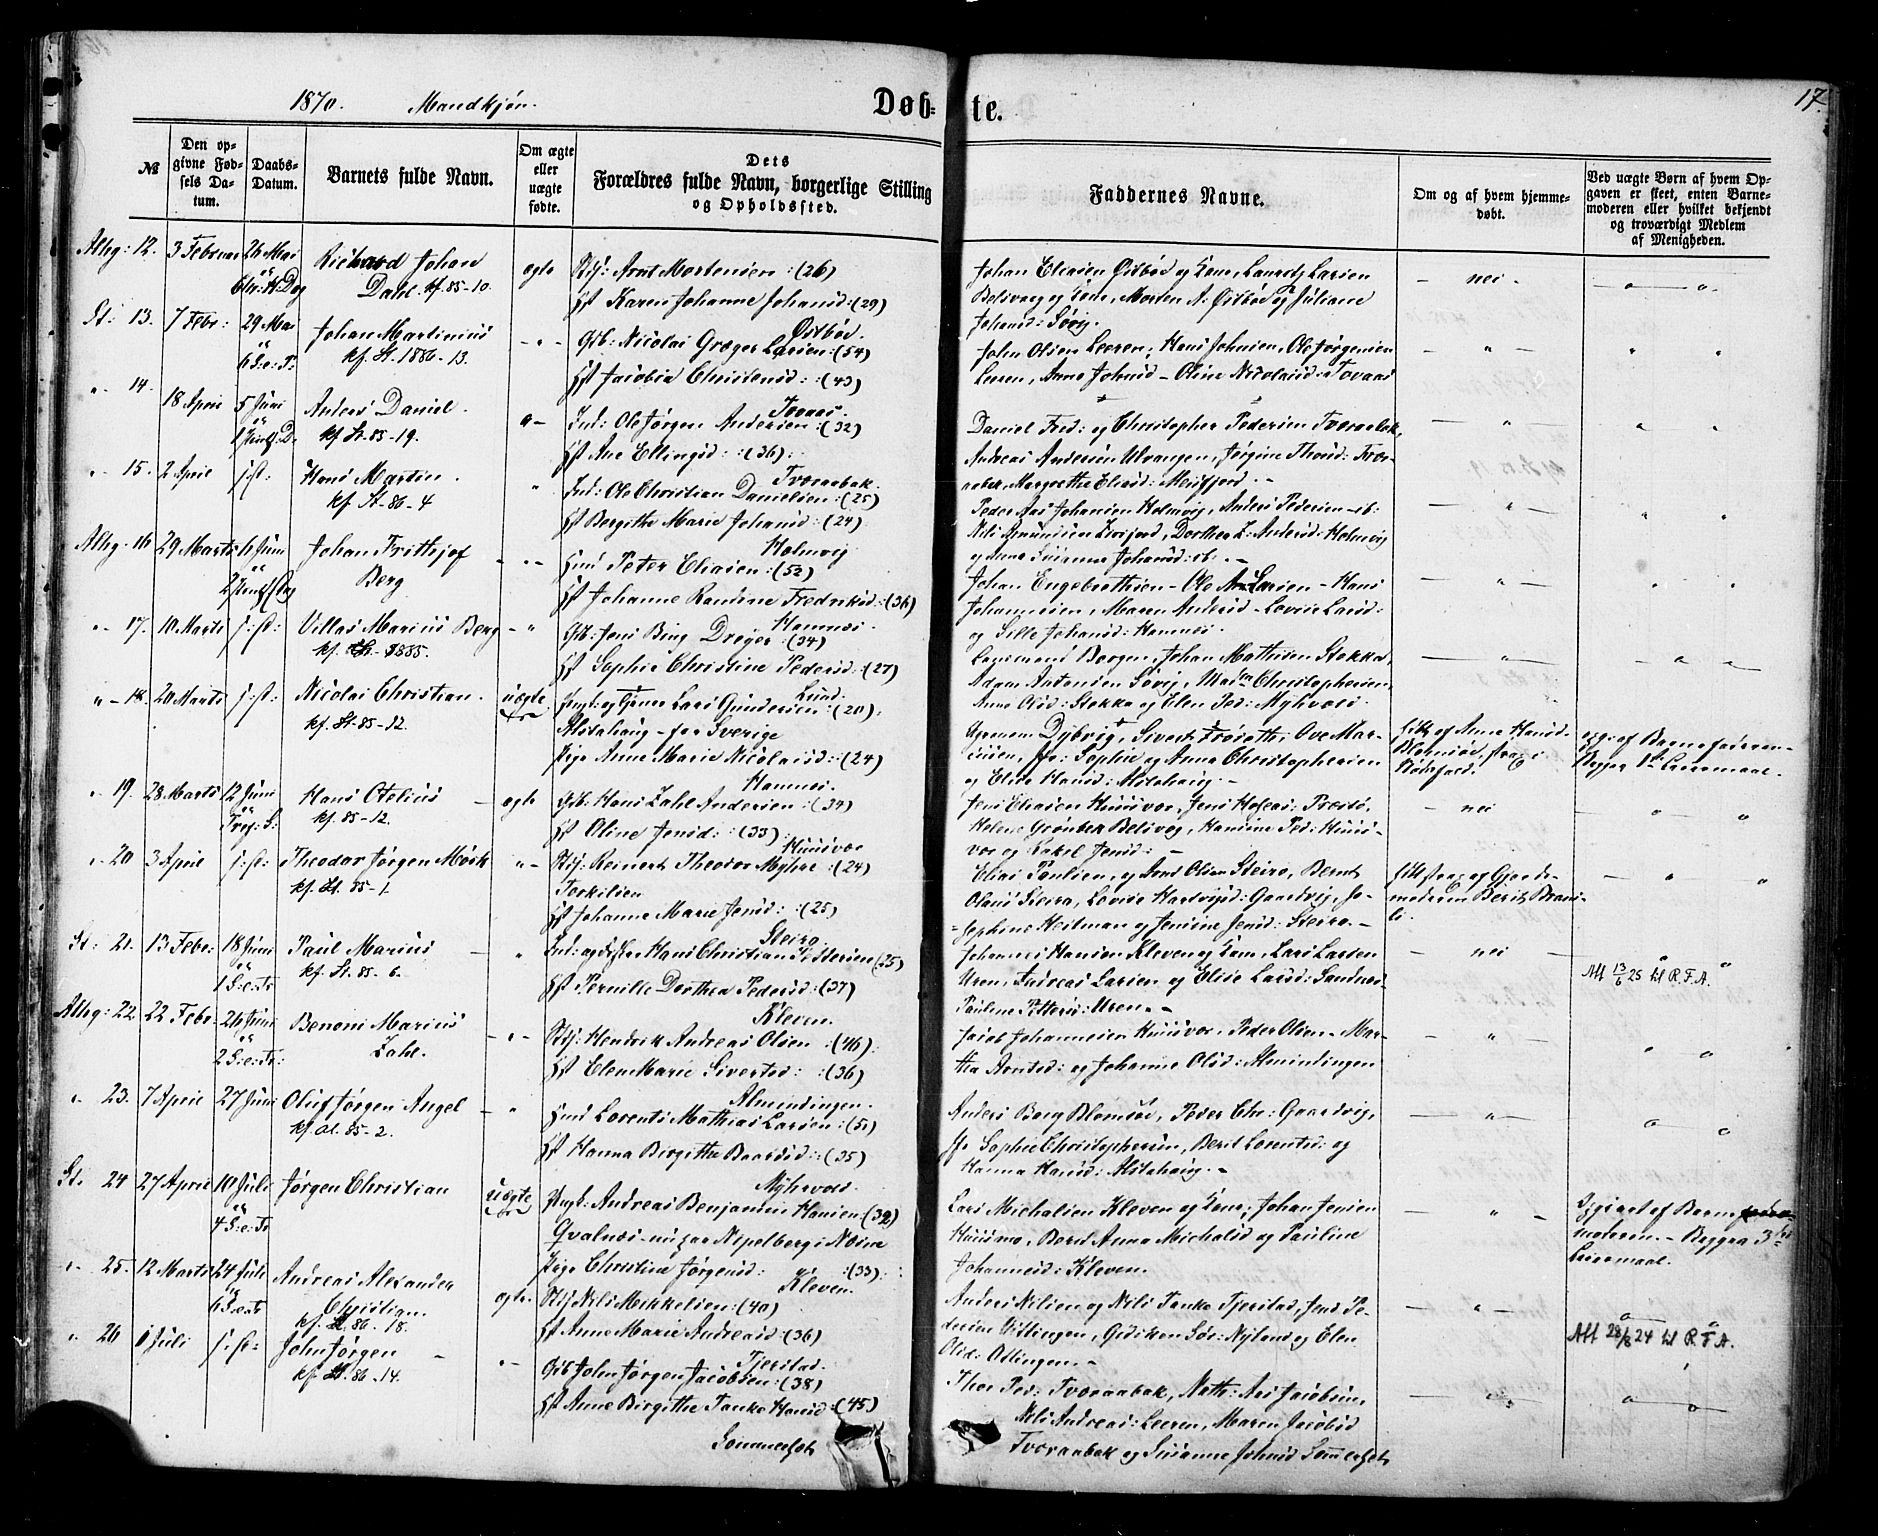 1870. Mandkjøn.
Døb-
te.
17.
№
Den op-
givne Fød-
sels Da-
tum.
Daabs-
Datum.
Barnets fulde Navn.
Om ægte
eller
uægte
fødte.
Dets
Forældres fulde Navn, borgerlige Stilling
og Opholdssted.
Faddernes Navne.
Om og af hvem hjemme-
døbt.
Ved uægte Børn af hvem Op-
gaven er skeet, enten Barne-
moderen eller hvilket bekjendt
og troværdigt Medlem
af Menigheden.
Alhg: 12. 3 Februar 26 Mai
Chr: H: Dag
Richard Johan
Dahl. kf. 85-10.
ægte
Arnt Mortensen: (26)
Karen Johanne Johansd: (29)
Østbød.
Johan Eliasen Østbød og Kone, Lauritz Larsen
Belsvaag og Kone, Morten A. Østbød og Juliane
Johansd: Søvig.
nei
St: 13. 7 Febr: 29 Mai
6 S: e: P:
Johan Martinius
kf. St. 1886-13.
Gb: Nicolai Græger Larsen: (54)
Jacobia Christensd: (43)
Tovaas.
John Olsen Leeren, Hans Johnsen, Ole Jørgensen
Leeren, Anne Johnsd - Oline Nicolaisd: Tovaas
14. 18 April 5 Juni
1 Pintsd: D.
Anders Daniel.
kf. St. 85-19.
Ind: Ole Jørgen Andersen: (32)
Ane Ellingsd: (36)
Tvoraabak.
Daniel Fred: og Christopher Pedersen Tvoraabak,
Andreas Andersen Ulvangen, Jørgine Thorsd: Tvor-
aabak, Margrethe Eliasd: Meisfjord.
15. 2 April s: st:
Hans Martin.
kf. St-86-4
Ind: Ole Christian Danielsen: (25)
Bergithe Marie Johansd: (24)
Holmvig
Peder Aas Johansen Holmvig, Anders Pedersen ib:
Nils Amundsen Leirfjord, Dorthea L: Andersd: Holmvig
og Anna Susanna Johansd: ib.
Alhg: 16 29 Marts 6 Juni
2 Pintsdag
Johan Frithjof
Berg
Huusmd Peter Eliasen: (52)
Johanne Randine Fredriksd: (36)
Hamnæs.
Johan Engebrethsen - Ole A Larsen - Hans
Johannesen, Maren Andersd - Lovise Larsd:
og Sille Johansd: Hamnæs.
17. 10 Marts s: st:
Villas Marius Berg
kf. 1885.
Gb: Jens Bing Dreyer: (34)
Sophie Christine Pedersd: (27)
Lund.
Lensmand Borgen, Johan Mathisen Stokka,
Adam Antonsen Søvig, Christophersen,
Anne Olsd: Stokka og Elen Ped: Myhvold.
18. 20 Marts s: st:
Nicolai Christian.
kf. St. 85-12.
uægte
Ungk: og Tjener Lars Gundersen: (20)
Alstahaug - fra Sverige
Pige Anne Marie Nicolaisd: (24)
Hamnæs.
Dybvig, Sivert Frøiseth, Ove Mar-
Sophie og Anna Christophersen
og Elise Hansd: Alstahaug.
af Anne Hansd:
Blomsøe, strax
opg: af Barnefaderen
Begges 1ste Leiermaal.
19. 28 Marts 12 Juni
Tref: S:
Hans Otelius
kf. 85-12.
ægte
Gb: Hans Zahl Andersen: (39)
Oline Jensd: (33)
Huusvær
Jens Eliasen Huusvær, Jens Præstø,
Helene Grønbek Belsvog, Hansine Ped: Huus-
vær og Rakel Jensd:
nei
20 3 April s: st:
Theodor Jørgen Mørk
kf. St. 85-1.
Reinert Theodor Myhre: (24)
Torkilsen
Johanne Marie Jensd: (25)
Steiro.
Elias Paulsen, og Arnt Olsen Steiro, Bernt
Olsens Steiro, Lovise Hartvigsd: Gaardvig, Jo-
sephine Heitman og Jensine Jensd: Steiro.
strax og Gjorde-
moderen Berit Brans-
li.
St: 21. 13 Febr: 18 Juni
1 S: e: Tr
Paul Marius
kf. St. 85-6.
Hans Christian Pettersen (35)
Pernille Dorthea Pedersd: (37)
Kleven.
Johannes Hansen Kleven og Kone, Lars Larsen
Uren, Andreas Larsen og Elise Larsd: Sandnes
Pauline Pettersd: Uren.
nei
Att 13/6 25 til R.F.A.
Alhg: 22. 22 Febr: 26 Juni
2 S: e: Tr:
Benoni Marius
Zahl.
Hendrik Andreas Olsen: (46)
Elen Marie Sivertsd: (36)
Almindingen.
Jacob Johannesen Huusvær, Peder Olsen - Mar-
tha Arntsd: og Johanne Olsd: Almindingen
23. 7 April 27 Juni
Oluf Jørgen Angel
kf. Al. 85-2.
Huusmd Lorents Mathias Larsen: (51)
Hanna Birgitha Baarsd: (35)
Myhvold.
Anders Berg Blomsøe, Peder Chr: Gaardvig,
Sophie Christophersen, Berit Lorentsd: og
Hanna Hansd: Alstahaug.
St. 24 27 April 10 Juli
4 S: e: Tr
Jørgen Christian
uægte
Ungk: Andreas Benjamin Hansen: (32)
Qvalnæs
Pige Christine Jørgensd: (33)
Kleven.
Lars Michalsen Kleven og Kone, Johan Jensen
Huusmo, Berit Anna Michalsd og Pauline
Johannesd: Kleven.
Opgivet af Barne
moderen. - Begges 3die
Leiermaal.
25. 12 Marts 24 Juli
6 S: e: Tr
Andreas Alexander
Christian.
kf. St. 86-18.
ægte
Nils Mikkelsen: (40)
Anne Marie Andreasd: (36)
Tjerstad.
Anders Nilsen og Nils Tanke Tjerstad, Jens Pe-
dersen Ottingen, Gediken Nyland og Elen
Olsd: Ottingen.
Att 28/8 24 til R.F.A.
26 1 Juli s: st:
John Jørgen
kf. St. 86-14.
Gb John Jørgen Jacobsen: (38)
Anne Birgithe Tanke Hansd (45)
Sommerset
Thor Ped: Tvoraabak, Nath: Aas Jacobsen,
Nils Andreas: Leeren, Maren Jacobsd
Tvoraabak og Susanne Johnsd Sommerset